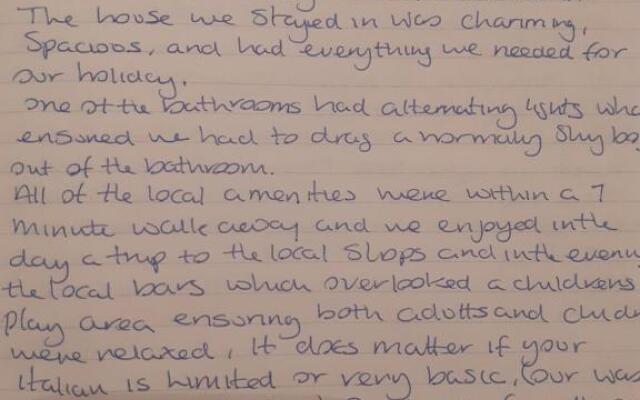 The house we stayed in was charming,
Spacioos, and had everything we needed for
our holiday.
one of the bathrooms had alternating lights
ensured we had to drag a normaly shy
out of the bathroom.
All of the local amenities were within a 7
minute walk away and we enjoyed in the
day a trip to the local Slops and in the
the local bars which overlooked a childrens
play area ensuring both adults and
were relaxed, It does matter if your
italian is limited or very basic, our was